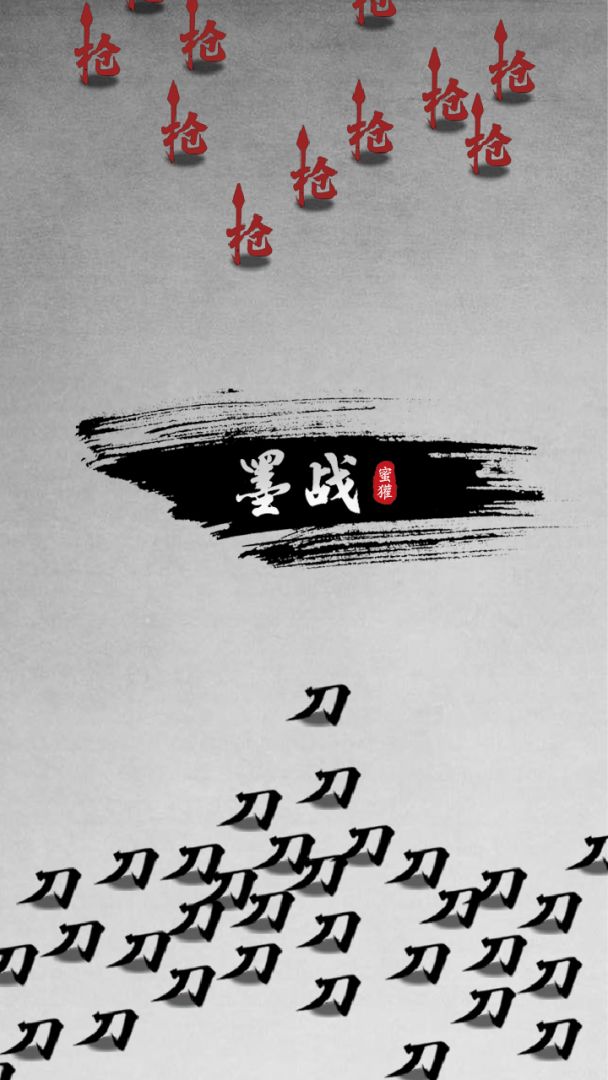 枪 枪
枪 枪 枪
枪
枪 枪 枪
枪
枪
墨战
蜜獾
刀
刀
刀
刀 刀 刀
刀 刀 刀 刀
刀 刀 刀
刀 刀 刀 刀
刀 刀
刀 刀 刀 刀 刀 刀
刀 刀 刀
刀 刀 刀
刀